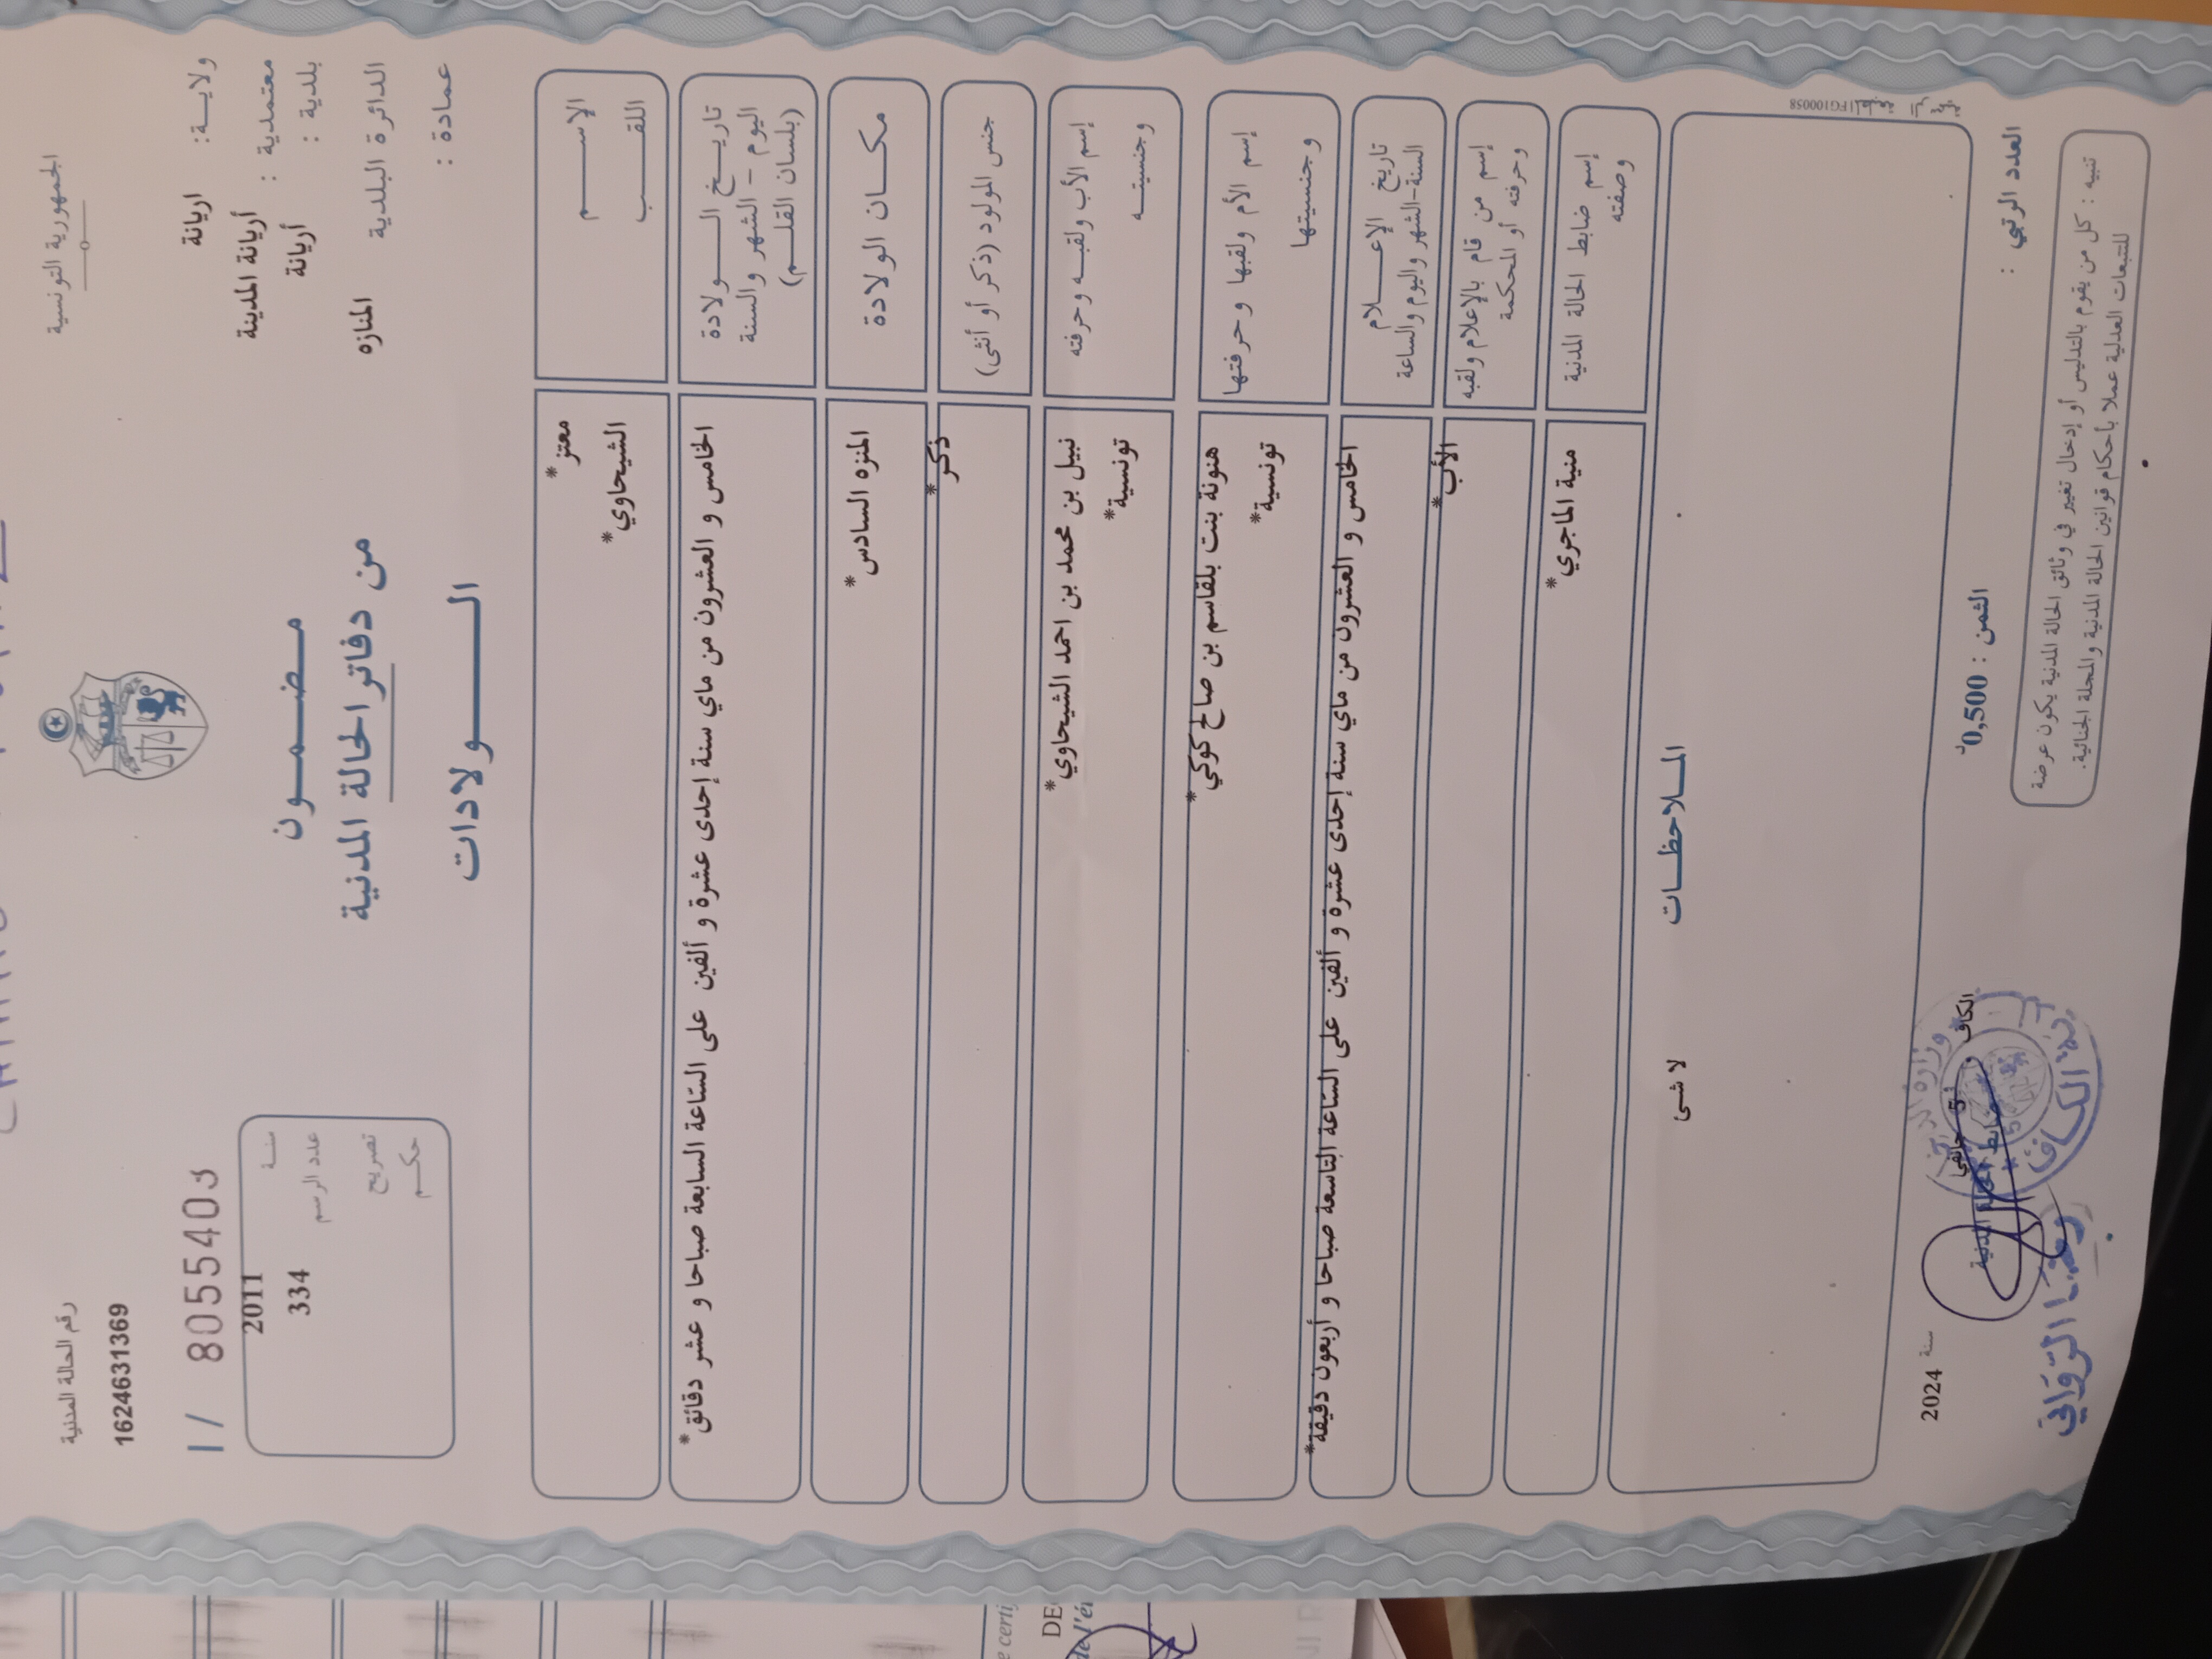 الجمهورية التونسية
ولاية: اريانة
معتمدية : أريانة المدينة
بلدية : أريانة
الدائرة البلدية المنازه
عمادة :
مضمون
من دفاتر الحالة المدنية
الولادات
رقم الحالة المدنية
1624631369
I / 805540 د
سنة 2011
عدد الرسم 334
تصريح
حكم
الإسم معتز*
اللقب الشيحاوي*
تاريخ الولادة
اليوم - الشهر والسنة
(بلسان القلم)
الخامس و العشرون من ماي سنة إحدى عشرة و ألفين على الساعة السابعة صباحا و عشر دقائق*
مكان الولادة المنزه السادس*
جنس المولود (ذكر أو أنثى) ذكر*
إسم الأب ولقبه وحرفته نبيل بن محمد بن احمد الشيحاوي*
وجنسيته تونسية*
إسم الأم ولقبها وحرفتها هنونة بنت بلقاسم بن صالح كوكي*
وجنسيتها تونسية*
تاريخ الإعلام
السنة-الشهر واليوم والساعة
الخامس و العشرون من ماي سنة إحدى عشرة و ألفين على الساعة التاسعة صباحا و أربعون دقيقة*
إسم من قام بالإعلام ولقبه
وحرفته أو المحكمة
الأب*
إسم ضابط الحالة المدنية منية الماجري*
وصفته
الملاحظات
لا شئ
FG100058
العدد الرتبي :
الثمن : 0,500د
الكاف 5 جانفي سنة 2024
ضابط الحالة المدنية
تنبيه : كل من يقوم بالتدليس أو إدخال تغيير في وثائق الحالة المدنية يكون عرضة
للتتبعات العدلية عملا بأحكام قوانين الحالة المدنية والمجلة الجنائية.